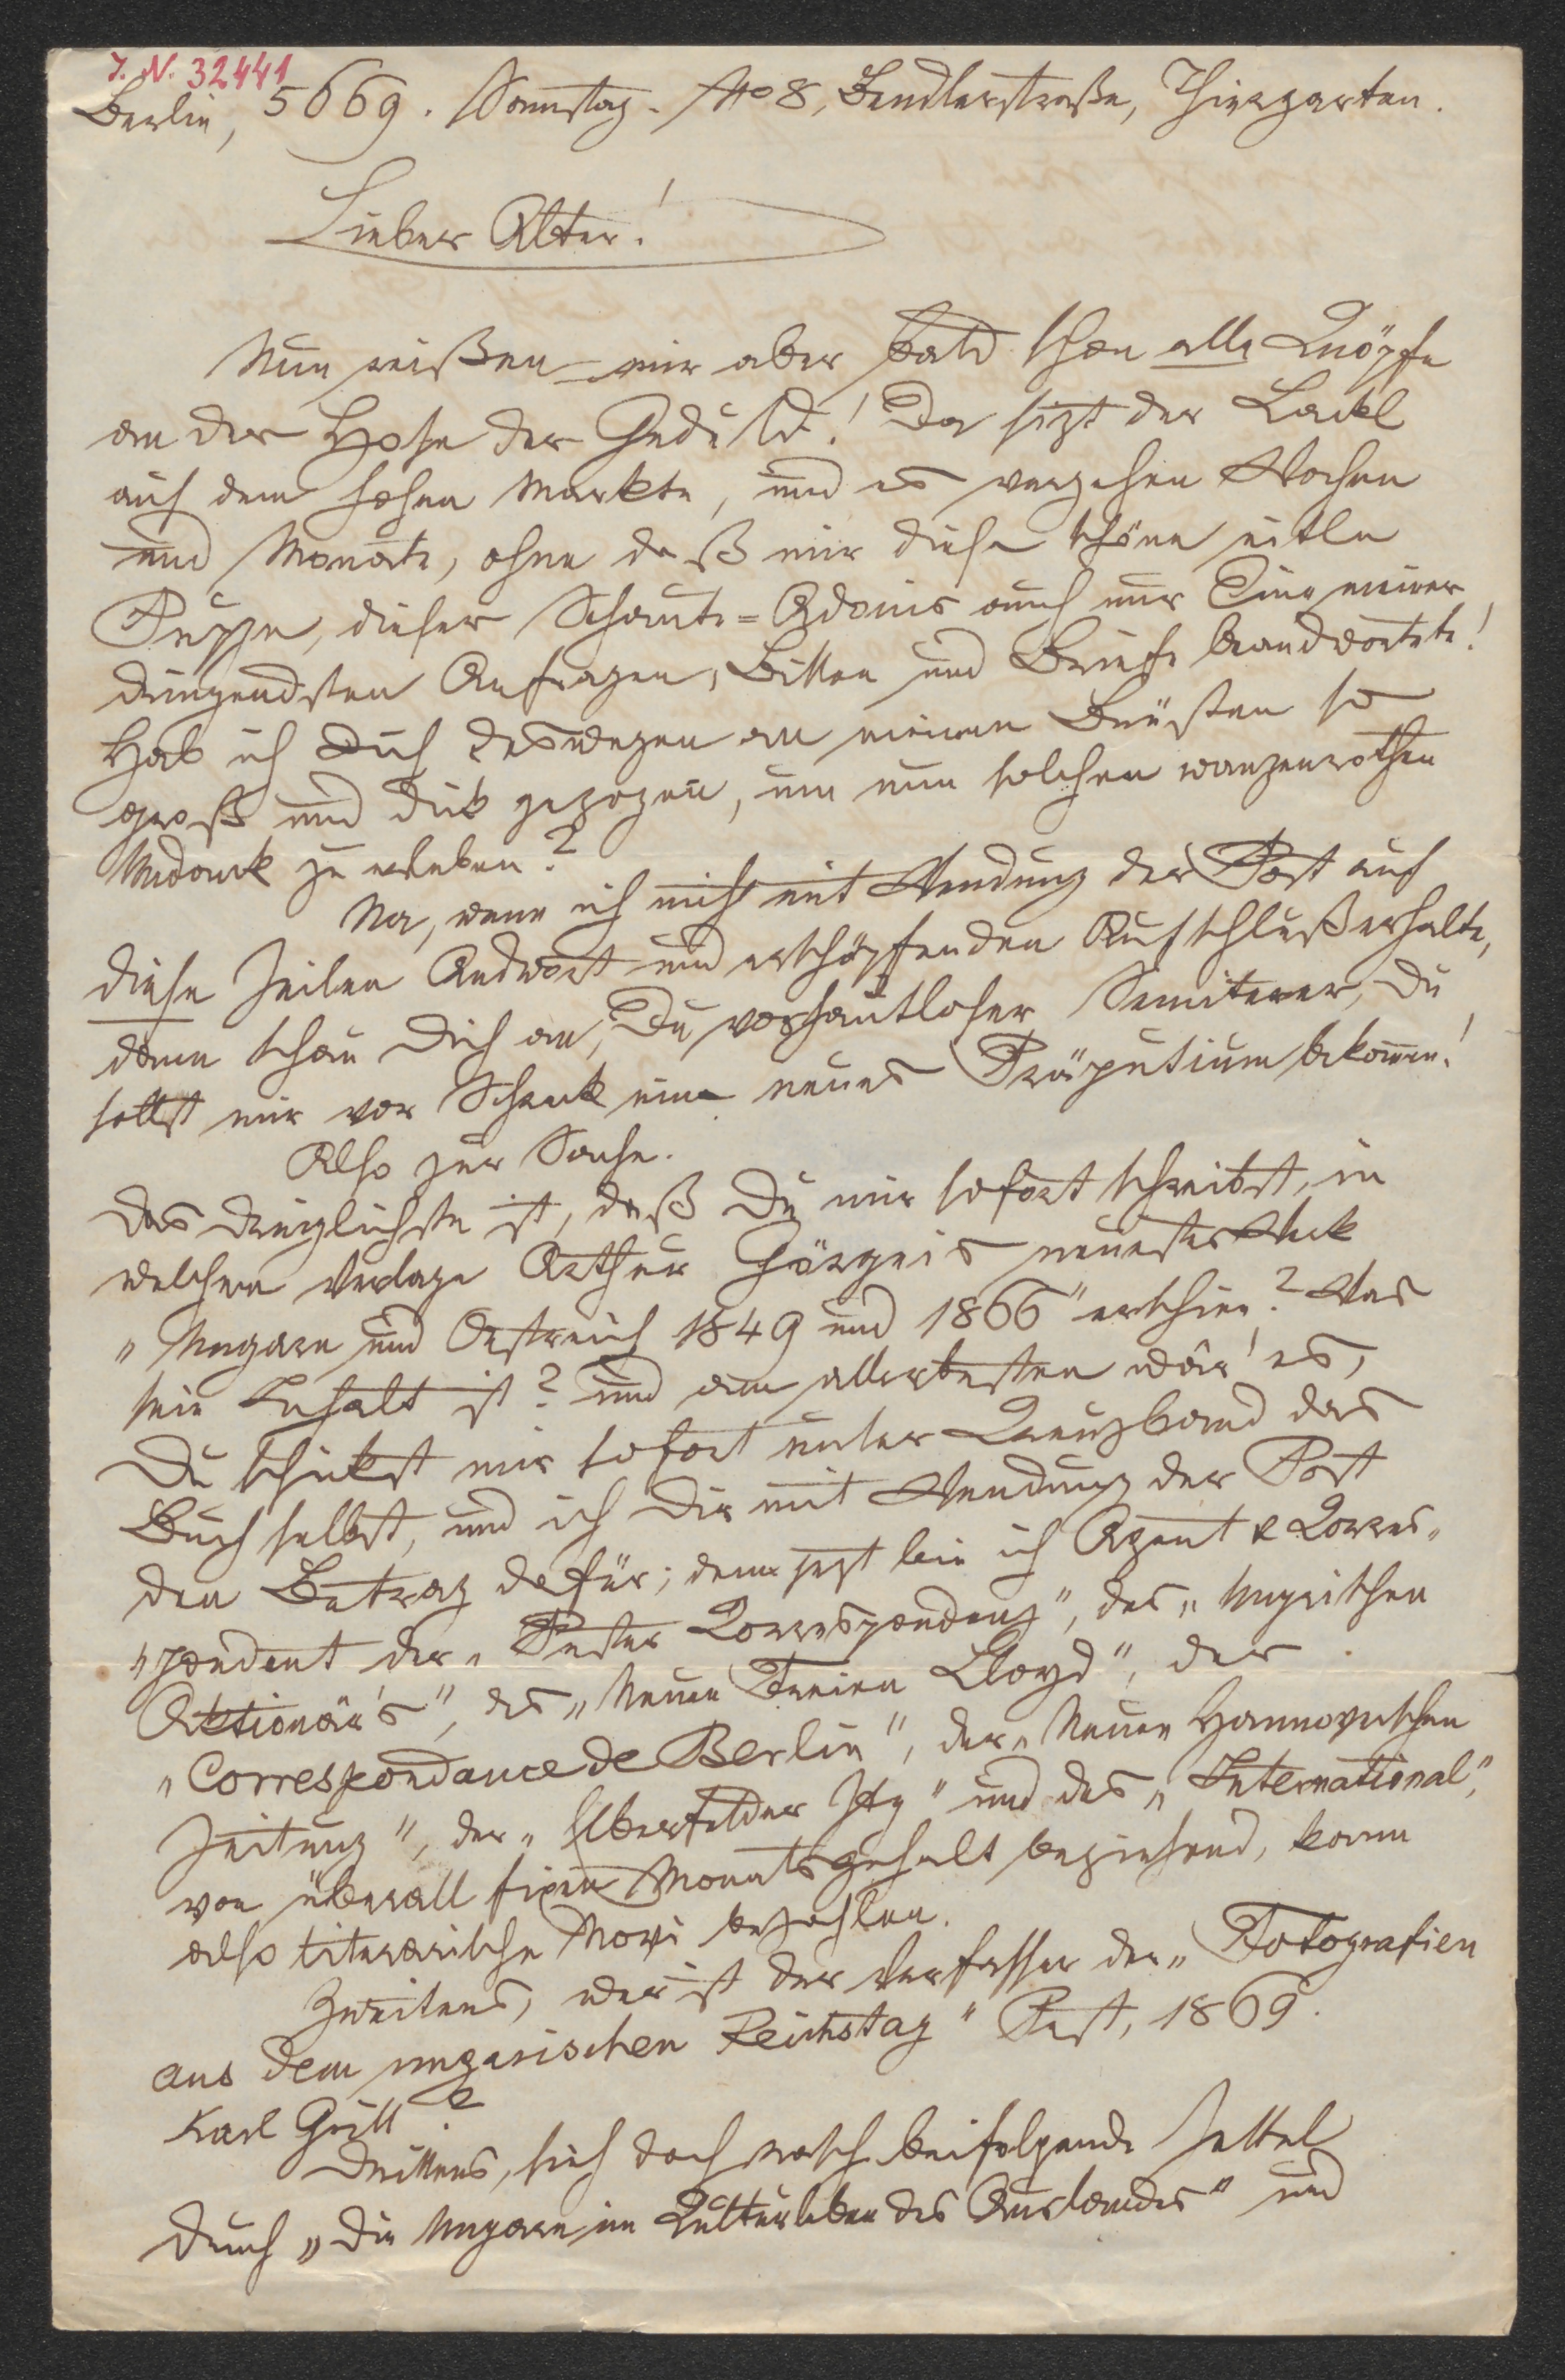 J. N. 32441
Berlin, 5669. Samstag. No 8, Bendlerstraße, Thiergarten.
Lieber Alter!
Nun reißen mir aber bald schon alle Knöpfe
an der Hose der Geduld! Da sizt der Lackl
auf dem hohen Markte, und es vergehen Wochen
und Monate, ohne daß mir diese schöne eitle
Puppe, dieser Schaute=Adonis auch nur Eine meiner
dringendsten Anfragen, Bitten und Briefe beandwortete!
Hab ich Dich deswegen an meinen Brüsten so
groß und dick gezogen, um nun solchen wanzenrothen
Undank zu erleben?
Na, wenn ich nicht mit Wendung der Post auf
diese Zeilen Andwort und erschöpfenden Aufschluß erhalte,
dann schau Dich an, Du vorhautloser Semiterer, Du
sollst mir vor Schreck ein neues Präputium bekommen!
Also zur Sache.
Das dringlichste ist, daß Du mir sofort schreibst, in
welchem Verlage Arthur Görgeis neuestes Werk
„Ungarn und Oestreich 1849 und 1866" erschien? Was
sein Inhalt ist? und am allerbesten wär' es,
Du schickst mir sofort unter Kreuzband das
Buch selbst, und ich Dir mit Wendung der Post
den Betrag dafür; denn jezt bin ich Agent & Korres„
„pondent der „Pester Korrespondenz", des „Ungrischen
Aktionär's", des „Neuen Freien Lloyd", der
„Correspondance de Berlin", der „Neuen Hannoverschen
Zeitung", der „Elberfelder Ztg" und des „International",
von überall fixen Monatsgehalt beziehend, kann
also literarische Novi bezahlen.
Zweitens, wer ist der Verfasser der „Fotografien
aus dem ungarischen Reichstag" Pest, 1869.
Karl Grill?
Drittens, sieh doch rasch beifolgende Zettel
durch „Die Ungarn im Kulturleben des Auslandes" und